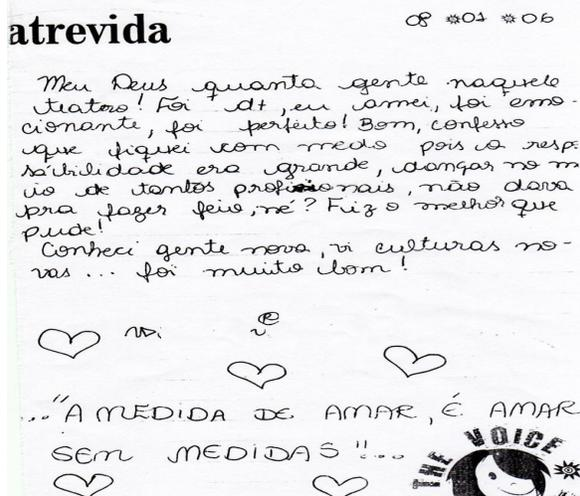 atrevida
08 * 01 * 06
Meu Deus quanta gente naquele
teatro! Foi d+, eu amei, foi emo-
cionante, foi perfeito! Bom, confesso
que fiquei com medo pois a resp
sabilidade era grande, dançar no m
io de tantos profissionais, não dava
pra fazer feio, né? Fiz o melhor que
pude!
Conheci gente nova, vi culturas no-
vas... foi muito bom!
..."A MEDIDA DE AMAR, É AMAR
SEM MEDIDAS"!...
THE VOICE